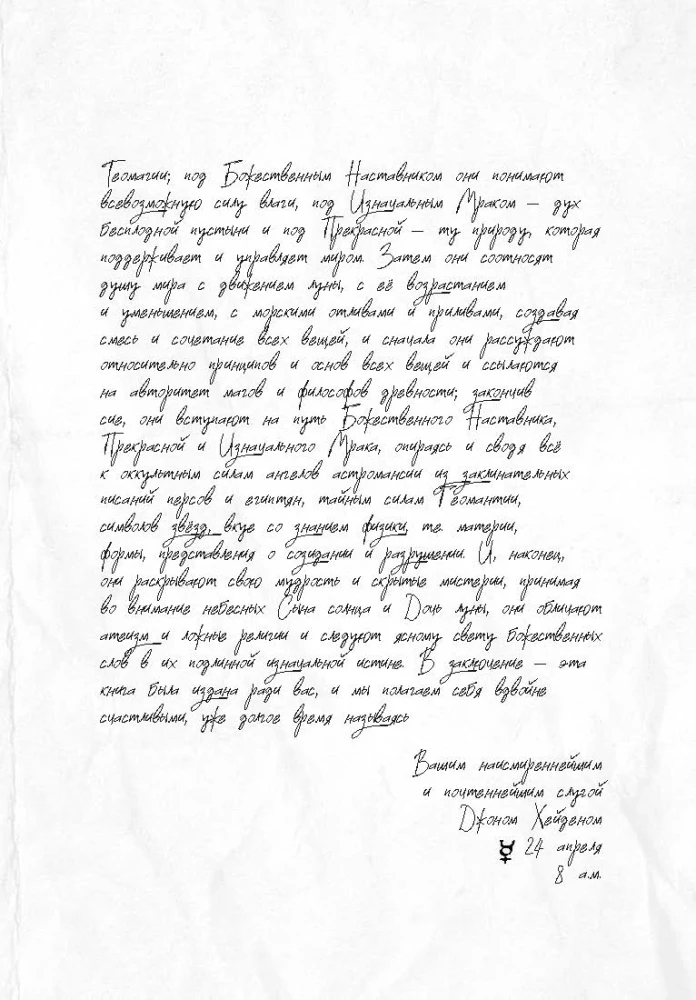 Теомагии; под Божественным Наставником они понимают
всевозможную силу влаги, под Изначальным Мраком — дух
бесплодной пустыни и под Прекрасной — ту природу, которая
поддерживает и управляет миром. Затем они соотносят
душу мира с движением луны, с её возрастанием
и уменьшением, с морскими отливами и приливами, создавая
смесь и сочетание всех вещей, и сначала они рассуждают
относительно принципов и основ всех вещей и ссылаются
на авторитет магов и философов древности; закончив
сие, они вступают на путь Божественного Наставника,
Прекрасной и Изначального Мрака, опираясь и сводя всё
к оккультным силам ангелов астромансии из заклинательных
писаний персов и египтян, тайным силам Геомантии,
символов звёзд, вкупе со знанием физики, т.е. материи,
формы, представления о созидании и разрушении. И, наконец,
они раскрывают свою мудрость и скрытые мистерии, принимая
во внимание небесных Сына солнца и Дочь луны, они обличают
атеизм и ложные религии и следуют ясному свету божественных
слов в их подлинной изначальной истине. В заключение — эта
книга была издана ради вас, и мы полагаем себя вдвойне
счастливыми, уже долгое время называясь
Вашим наисмиреннейшим
и почтеннейшим слугой
Джоном Хейденом
☿ 24 апреля
8 а.м.